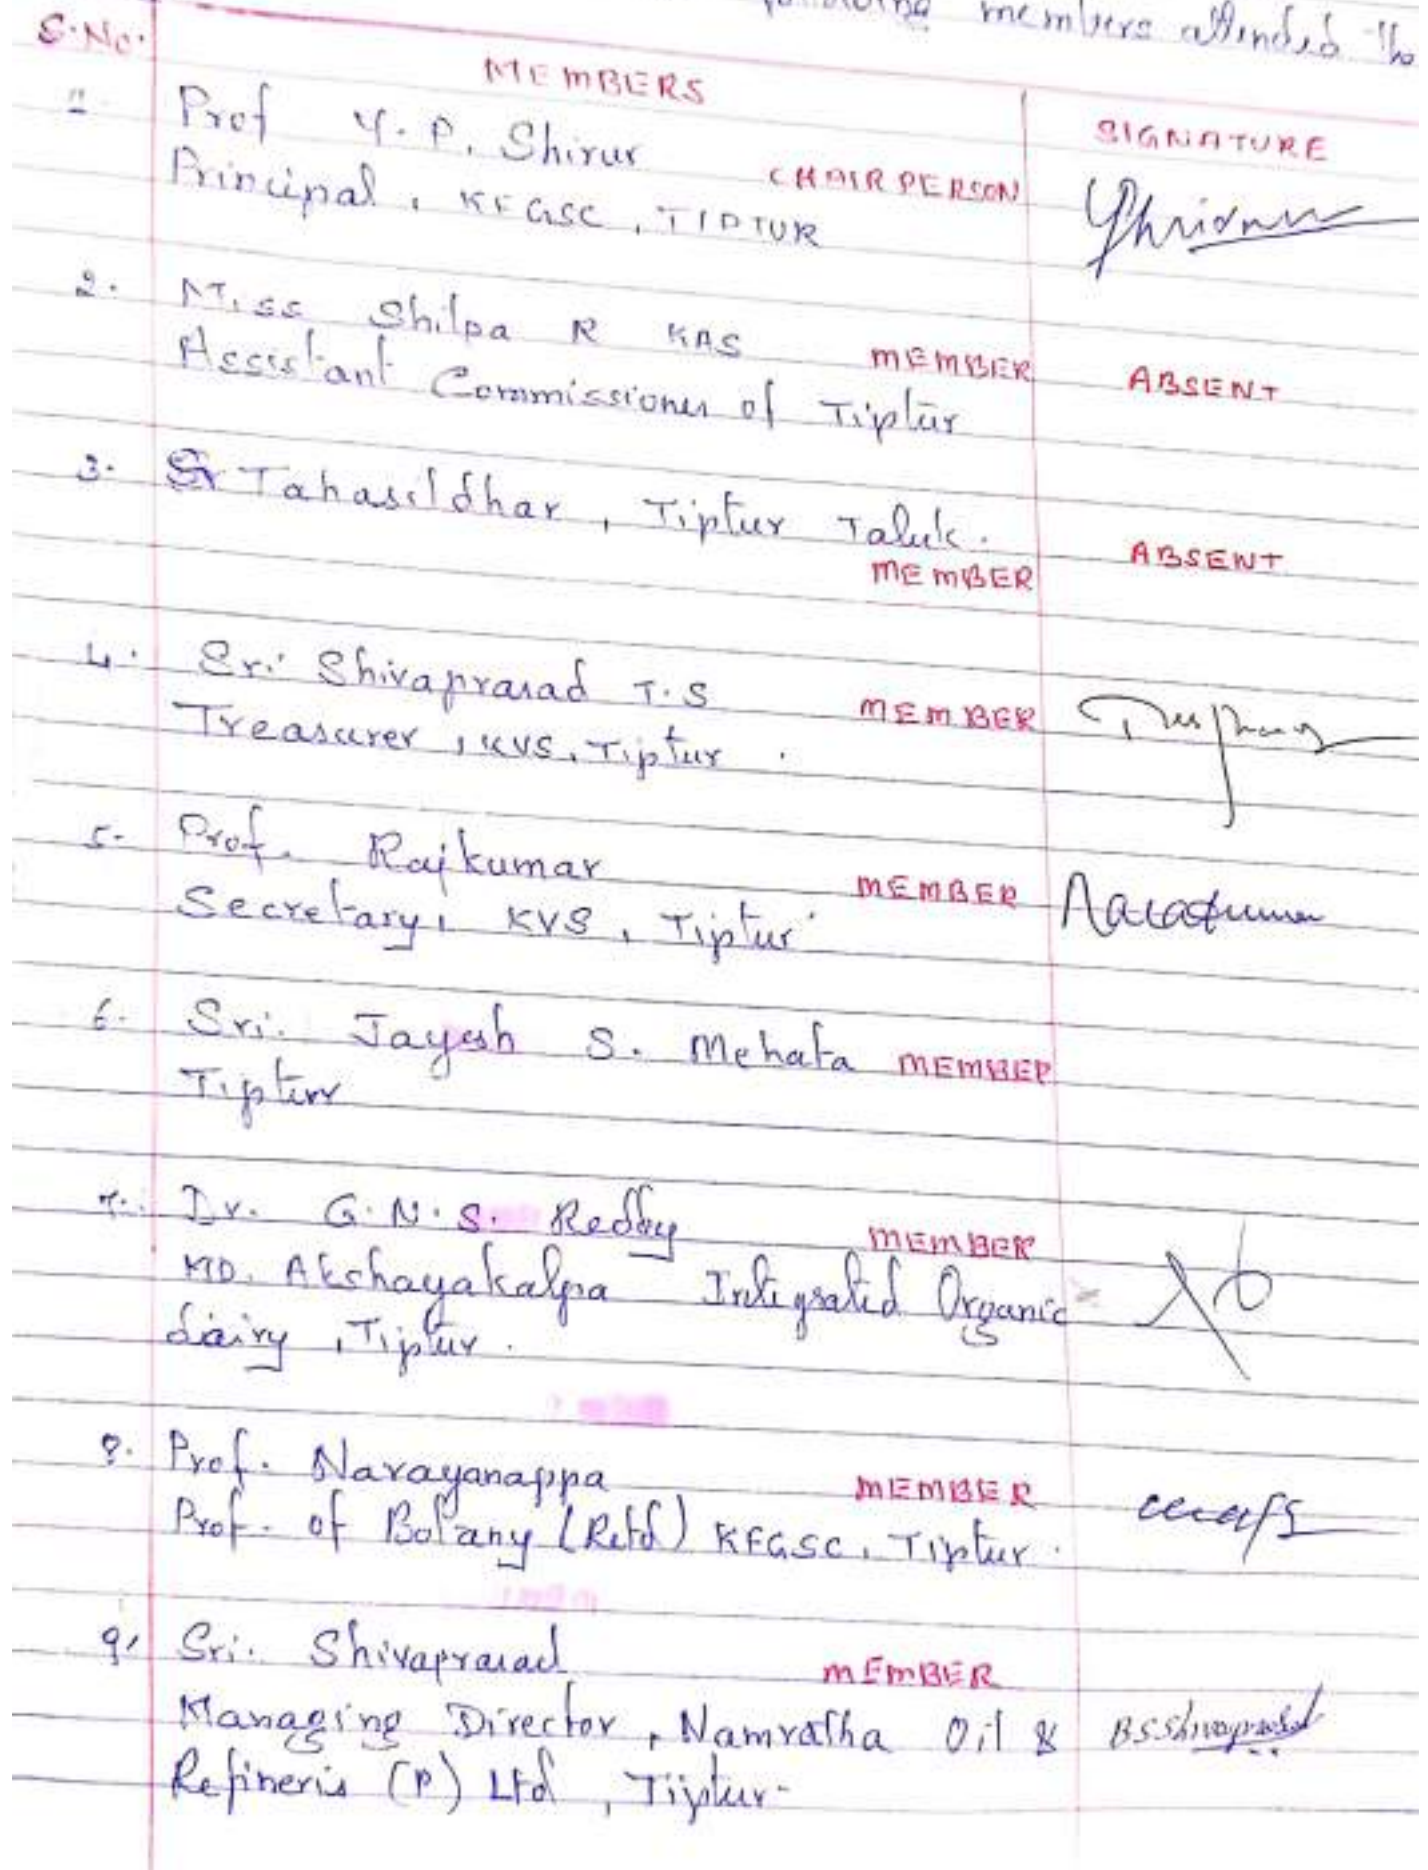 members attended the
S.No. MEMBERS SIGNATURE
1. Prof Y. P. Shirur CHAIR PERSON
Principal, KFGSC, TIPTUR
2. Miss Shilpa R KAS MEMBER ABSENT
Assistant Commissioner of Tiptur
3. Tahasildhar, Tiptur Taluk.
MEMBER ABSENT
4. Sri Shivaprasad T.S MEMBER
Treasurer, KVS, Tiptur.
5. Prof. Rajkumar MEMBER
Secretary, KVS, Tiptur
6. Sri. Jayesh S. Mehata MEMBER
Tiptur
7. Dr. G.N.S. Reddy MEMBER
MD. Akshayakalpa Integrated Organic
dairy, Tiptur.
8. Prof. Narayanappa MEMBER
Prof. of Botany (Retd) KFGSC, Tiptur.
9. Sri. Shivaprasad MEMBER
Managing Director, Namratha Oil & BSShivaprasad
Refineris (P) Ltd, Tiptur.